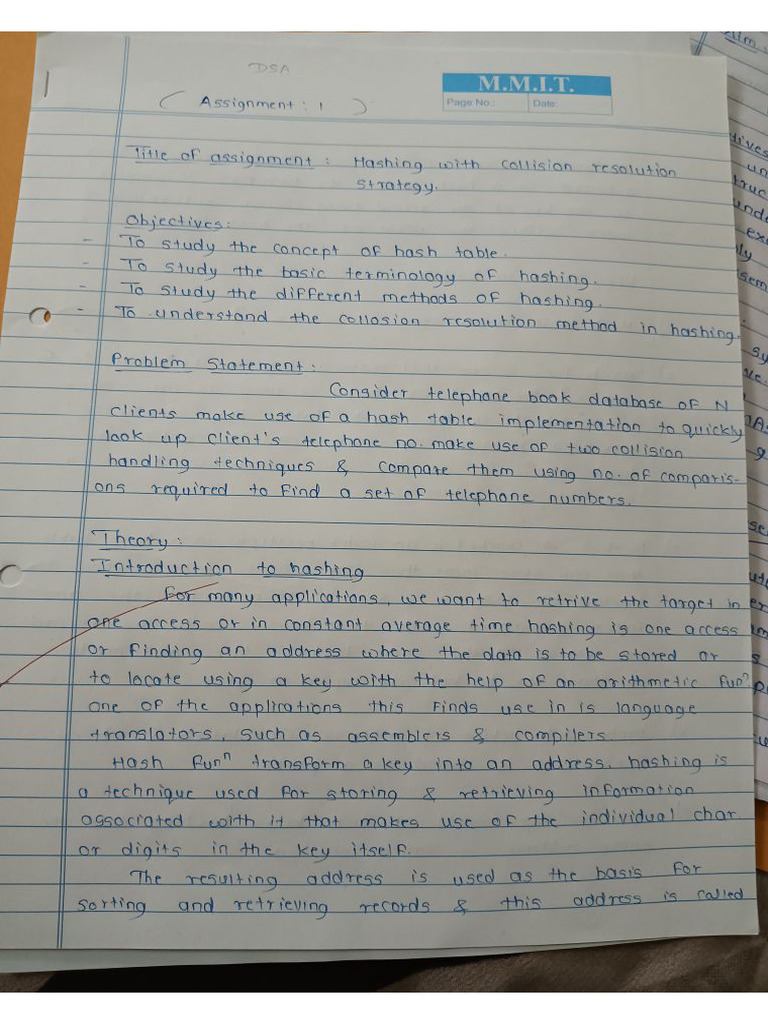 DSA
M.M.I.T.
Page No.: Date:
( Assignment : 1 )
Title of assignment : Hashing with collision resolution
strategy.
Objectives:
- To study the concept of hash table.
- To study the basic terminology of hashing.
- To study the different methods of hashing.
- To understand the collosion resolution method in hashing.
Problem Statement :
Consider telephone book database of N
clients make use of a hash table implementation to quickly
look up client's telephone no. make use of two collision
handling techniques & compare them using no. of comparis-
ons required to find a set of telephone numbers.
Theory :
Introduction to hashing
For many applications, we want to retrive the target in
one access or in constant average time hashing is one access
or finding an address where the data is to be stored or
to locate using a key with the help of an arithmetic funⁿ
one of the applications this finds use in is language
translators, such as assemblers & compilers.
Hash funⁿ transform a key into an address. hashing is
a technique used for storing & retrieving information
associated with it that makes use of the individual char.
or digits in the key itself.
The resulting address is used as the basis for
sorting and retrieving records & this address is called